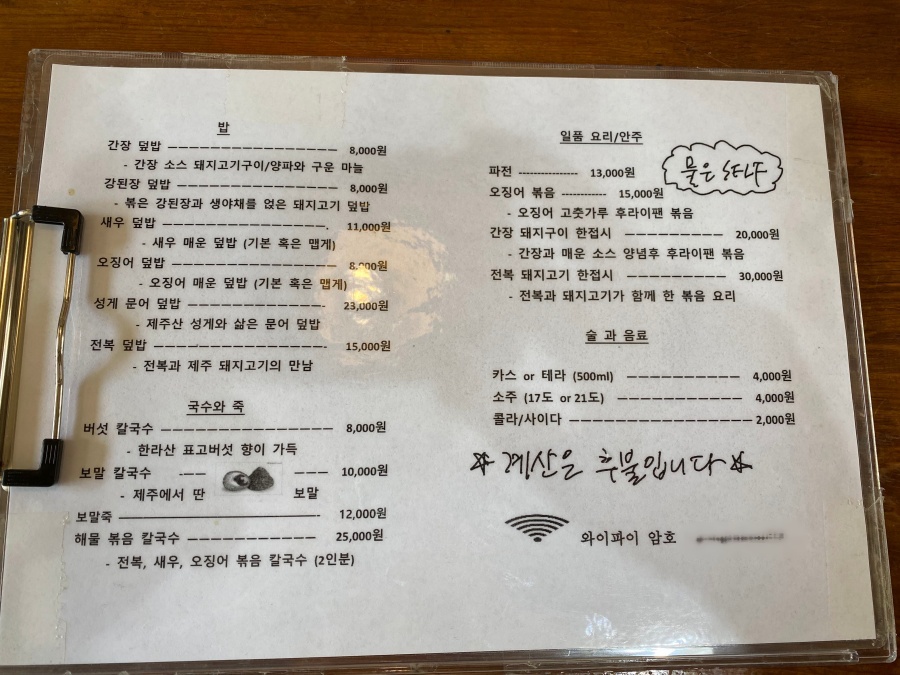 밥
간장 덮밥 ——————————— 8,000원
- 간장 소스 돼지고기구이/양파와 구운 마늘
강된장 덮밥 ——————————— 8,000원
- 볶은 강된장과 생야채를 얹은 돼지고기 덮밥
새우 덮밥 ———————————. 11,000원
- 새우 매운 덮밥 (기본 혹은 맵게)
오징어 덮밥 ——————————— 8,000원
- 오징어 매운 덮밥 (기본 혹은 맵게)
성게 문어 덮밥 ——————————— 23,000원
- 제주산 성게와 삶은 문어 덮밥
전복 덮밥 ———————————- 15,000원
- 전복과 제주 돼지고기의 만남
국수와 죽
버섯 칼국수 ——————————— 8,000원
- 한라산 표고버섯 향이 가득
보말 칼국수 ——- ——— 10,000원
- 제주에서 딴 보말
보말죽 ———————————- 12,000원
해물 볶음 칼국수 ——————————— 25,000원
- 전복, 새우, 오징어 볶음 칼국수 (2인분)
일품 요리/안주
물은 셀프
파전 --------------- 13,000원
오징어 볶음 ----------- 15,000원
- 오징어 고춧가루 후라이팬 볶음
간장 돼지구이 한접시 ——————— 20,000원
- 간장과 매운 소스 양념후 후라이팬 볶음
전복 돼지고기 한접시 ——————— 30,000원
- 전복과 돼지고기가 함께 한 볶음 요리
술 과 음료
카스 or 테라 (500ml) ——————— 4,000원
소주 (17도 or 21도) ——————— 4,000원
콜라/사이다 ———————————- 2,000원
☆ 계산은 후불입니다 ☆
와이파이 암호